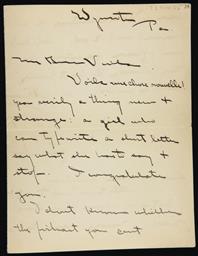 Wyncote
Pa
My dear Viola
Voila une chose nouvelle!
you verily a thing new &
strange. a girl who
can typewrite a short letter
say what she has to say &
stop. I congratulate
you.
I dont know whether
the portrait you sent